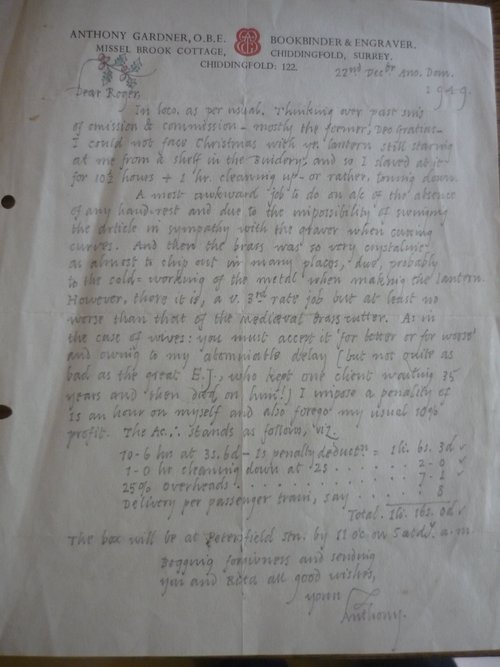 ANTHONY GARDNER, O.B.E. BOOKBINDER & ENGRAVER.
MISSEL BROOK COTTAGE, CHIDDINGFOLD, SURREY.
CHIDDINGFOLD: 122.
22nd Decbr Ano. Dom.
1949.
Dear Roger,
In loco. as per usual. Thinking over past sins
of omission & commission - mostly the former, Deo Gratias -
I could not face Christmas with yr. lantern still staring
at me from a shelf in the Bindery and so I slaved at it
for 10½ hours + 1 hr. cleaning up - or rather, toning down.
A most awkward job to do on a/c of the absence
of any handrest and due to the impossibility of swinging
the article in sympathy with the graver when cutting
curves. And then the brass was so very crystaline
as almost to chip out in many places, due, probably
to the cold-working of the metal when making the lantern.
However, there it is, a v. 3rd rate job but at least no
worse than that of the Mediæval brass cutter. As in
the case of wives: you must accept it 'for better or for worse'
and owing to my abominable delay (but not quite as
bad as the great E.J., who kept one client waiting 35
years and then died on him!) I impose a penalty of
1s an hour on myself and also forego my usual 10%
profit. The Ac/. stands as follows, viz.
10-6 hr at 3s. 6d - 1s penalty deductn = 1li. 6s. 3d ✓
1-0 hr cleaning down at 2s . . . . . . . 2-0 ✓
25% Overheads . . . . . . . . . . 7-2 ✓
Delivery per passenger train, say . . . . . 8
Total. 1li. 16s. 0d ✓
The box will be at Petersfield Stn. by 11 oc on Satdy. a.m
Begging forgivness and sending
you and Rita all good wishes,
yours
Anthony.